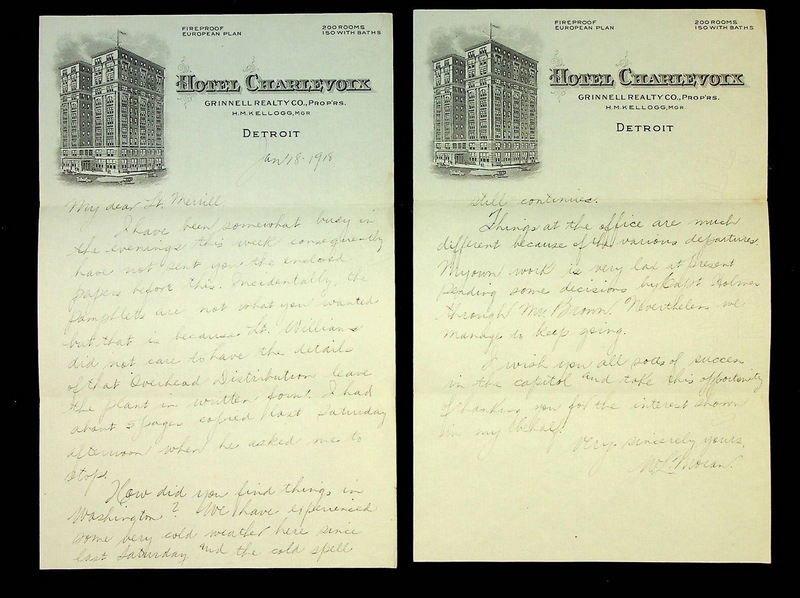 FIREPROOF
EUROPEAN PLAN
200 ROOMS
150 WITH BATHS
HOTEL CHARLEVOIX
GRINNELL REALTY CO., PROP'RS.
H.M. KELLOGG, MGR
DETROIT
Jan 18-1918
My dear Lt. Merrill
I have been somewhat busy in
the evenings this week consequently
have not sent you the enclosed
papers before this. Incidentally, the
pamphlets are not what you wanted
but that is because Lt. Williams
did not care to have the details
of that Overhead Distribution leave
the plant in written form. I had
about 5 pages copied last Saturday
afternoon when he asked me to
stop.
How did you find things in
Washington? We have experienced
some very cold weather here since
last Saturday and the cold spell
FIREPROOF
EUROPEAN PLAN
200 ROOMS
150 WITH BATHS
HOTEL CHARLEVOIX
GRINNELL REALTY CO., PROP'RS.
H.M. KELLOGG, MGR.
DETROIT
still continues.
Things at the office are much
different because of the various departures.
My own work is very lax at present
pending some decisions by Capt. Holmes
through Mr. Brown. Nevertheless we
manage to keep going.
I wish you all sorts of success
in the capitol and take this opportunity
of thanking you for the interest shown
in my behalf.
Very sincerely yours,
Moran.